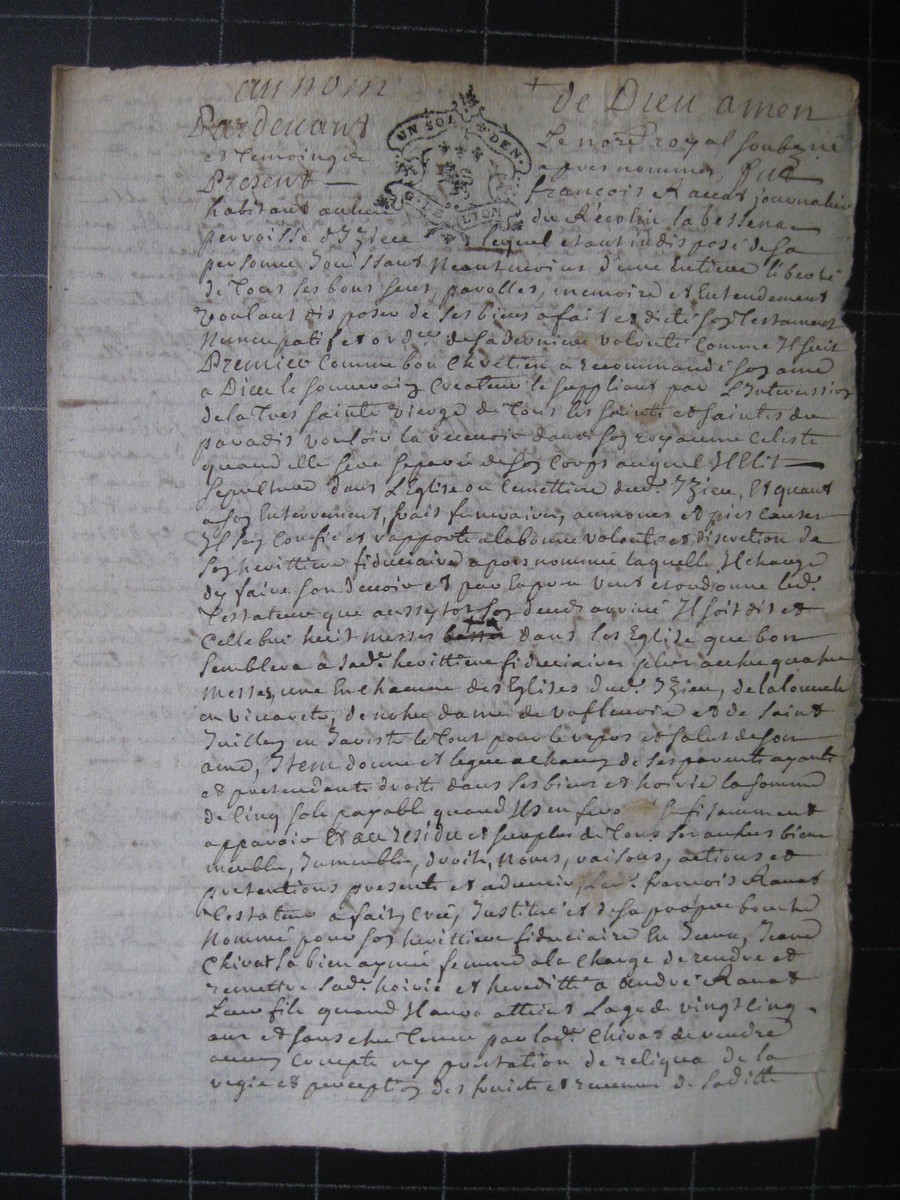 au nom + de Dieu amen
Pardevant Le nore Royal soubzné
et temoings apres nommés, fut
Present françois Ravat journalier
habitant au lieu du Récolin la bessena
perroisse d'Izieu lequel etant indisposé de sa
personne Jouissant Neantmoins d'une Entiere liberté
de tous ses bons sens, parolles, memoire et Entendement
voulant disposer de ses biens a fait et dicté son testament
Nuncupatif et ord.re de sa derniere volonté Comme Il suit
Premier Comme bon Chretien a recommandé son ame
a Dieu le souverain Createur le suppliant par L'Intercession
de la tres sainte vierge de tous les saints et saintes du
paradis vouloir la recevoir dans son royaume Celeste
quand elle sera separée de son Corps auquel Il Elit
sepulture dans L'Eglise ou Cemettiere dud. Izieu, Et quant
a son Enterrement, frais funeraires, aumones et pies causes
Il s'en Confie et rapporte a la bonne volonté et discretion de
son herittiere fiduciaire apres nommée laquelle Il charge
d'y faire son devoir et par Exprés veut et ordonne led.
testateur que aussytot son deceds arrivé Il soit dit et
Celebré huit messes dans les Eglise que bon
semblera a sad. herittiere fiduciaire, plus autre quatre
messes, une En chacune des Eglises dud. Izieu, de la
en vivarets, de notre dame de valfleurie et de saint
Juillen en Javiste le tout pour le repos et salut de son
ame, Item donne et legue a chacun de ses parents ayants
et pretendants droits dans ses biens et hoirie la somme
de Cinq sols payable quand Ils en fero
apparoir Et au residu et surplus de tous ses autres biens
meuble, Immeuble, droits, Noms, raisons, actions et
pretentions presents et advenir, Led. françois Ravat
testateur a fait, Créé, Institué et de sa propre bouche
Nommé pour son herittiere fiduciaire
Chirat sa bien aymée femme a la Charge de rendre et
remettre sad. hoirie et heredité a André Ravat
Leur fils quand Il aura atteint L'age de vingt Cinq
ans et sans etre Tenue par lad. Chirat de rendre
aucun Compte ny prestation de reliqua de la
regie et perception des fruits et revenus de saditte
UN SOL DEN.
LYON